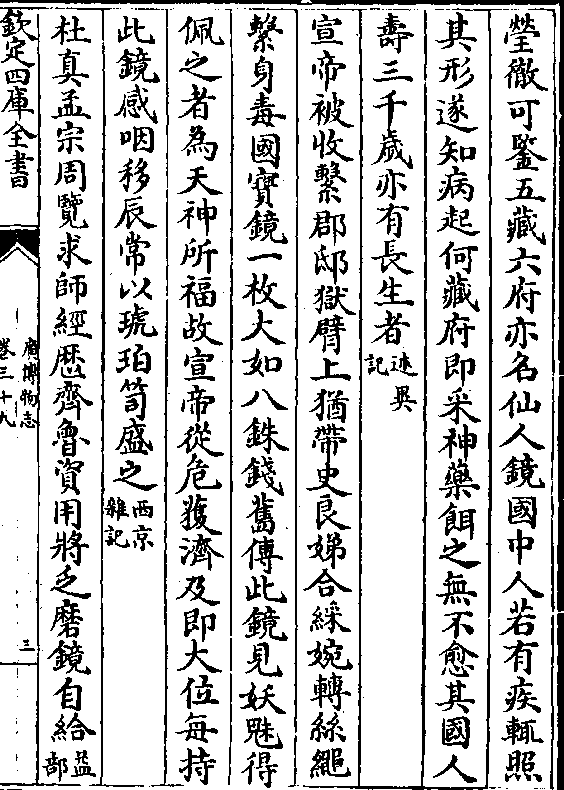 瑩徹可鑒五藏六府亦名仙人鏡國中人若有疾輒照
其形遂知病起何藏府即采神藥餌之無不愈其國人
壽三千歳亦有長生者述異記
宣帝被收繫郡邸獄臂上猶帶史良娣合綵婉轉絲繩
繫身毒國寶鏡一枚大如八銖錢舊傳此鏡見妖魅得
佩之者為天神所福故宣帝從危獲濟及即大位每持
此鏡感咽移辰常以琥珀笥盛之西京雜記
杜真孟宗周覽求師經厯齊魯資用將乏磨鏡自給益部
欽定四庫全書
廣博物志
卷三十九
三